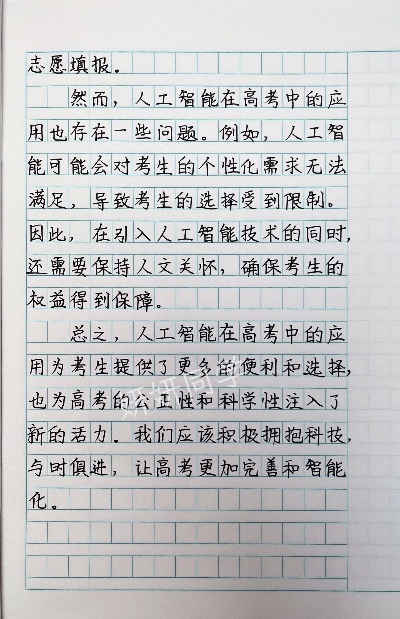 志愿填报。
然而，人工智能在高考中的应
用也存在一些问题。例如，人工智
能可能会对考生的个性化需求无法
满足，导致考生的选择受到限制。
因此，在引入人工智能技术的同时，
还需要保持人文关怀，确保考生的
权益得到保障。
总之，人工智能在高考中的应
用为考生提供了更多的便利和选择，
也为高考的公正性和科学性注入了
新的活力。我们应该积极拥抱科技，
与时俱进，让高考更加完善和智能
化。
妍妍同学